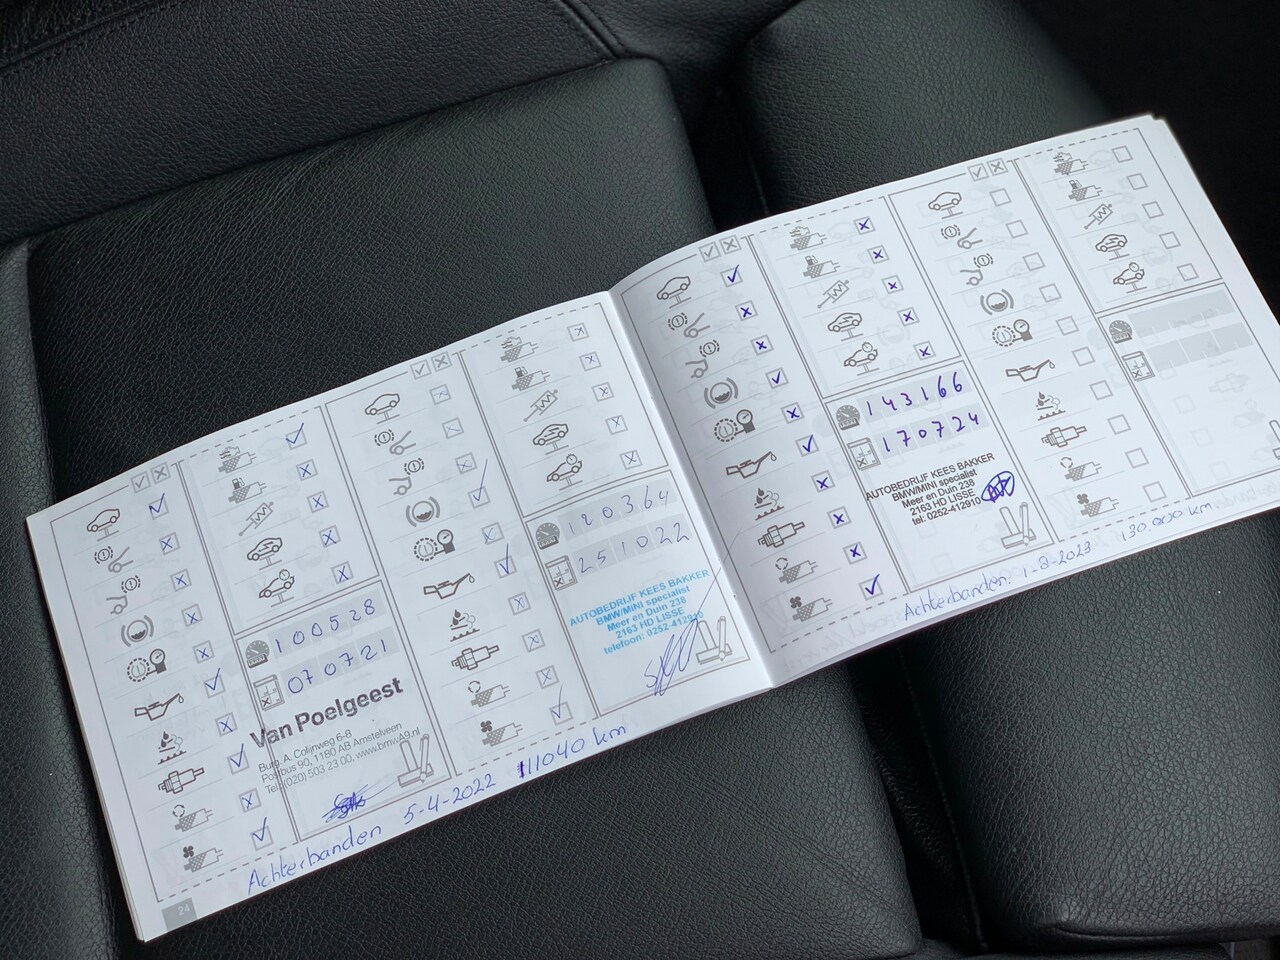 100528
070721
Van Poelgeest
Burg. A. Colijnweg 6-8
Postbus 90, 1180 AB Amstelveen
Tel. (020) 503 23 00, www.bmwA9.nl
Achterbanden 5-4-2022 111040 km
24
120364
251022
AUTOBEDRIJF KEES BAKKER
BMW/MINI specialist
Meer en Duin 238
2163 HD LISSE
telefoon: 0252-412910
143166
170724
AUTOBEDRIJF KEES BAKKER
BMW/MINI specialist
Meer en Duin 238
2163 HD LISSE
tel: 0252-412910
Achterbanden: 1-8-2023 130.000 km.